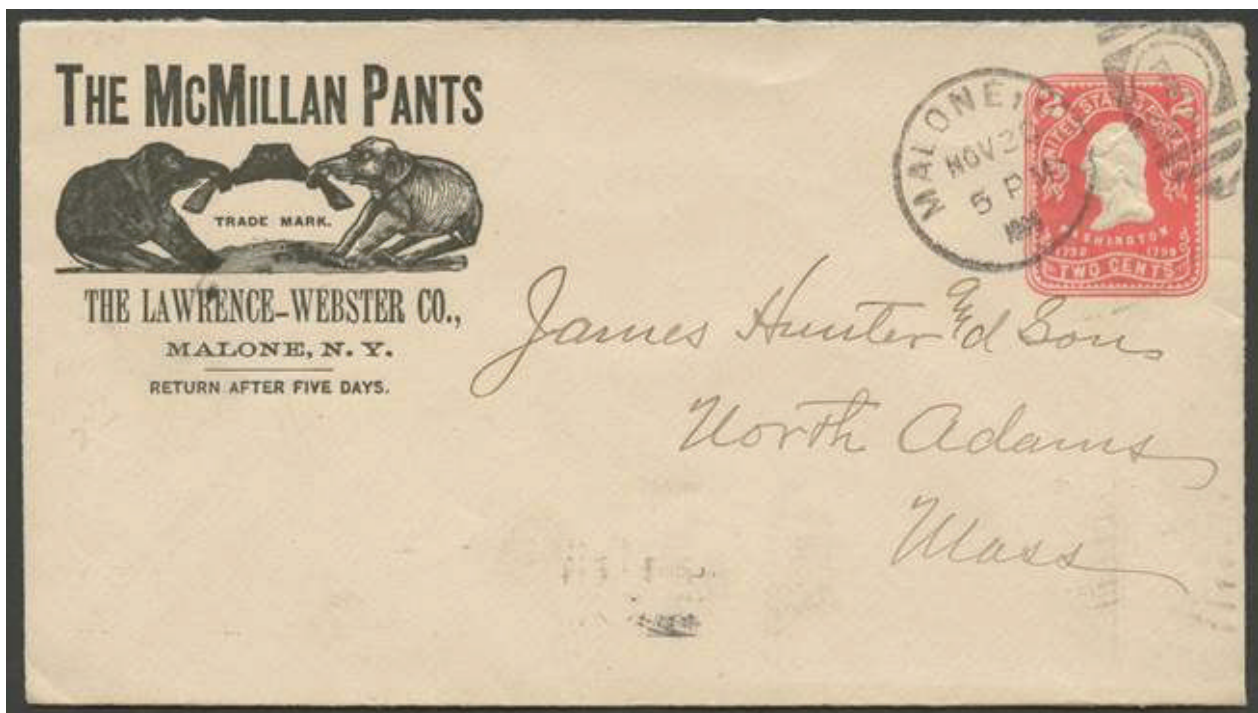 THE MCMILLAN PANTS
TRADE MARK.
THE LAWRENCE-WEBSTER CO.,
MALONE, N. Y.
RETURN AFTER FIVE DAYS.
MALONE
NOV
5 PM
2 UNITED STATES POSTAGE 2
WASHINGTON
1732 1799
TWO CENTS
James Hunter & Sons
North Adams
Mass